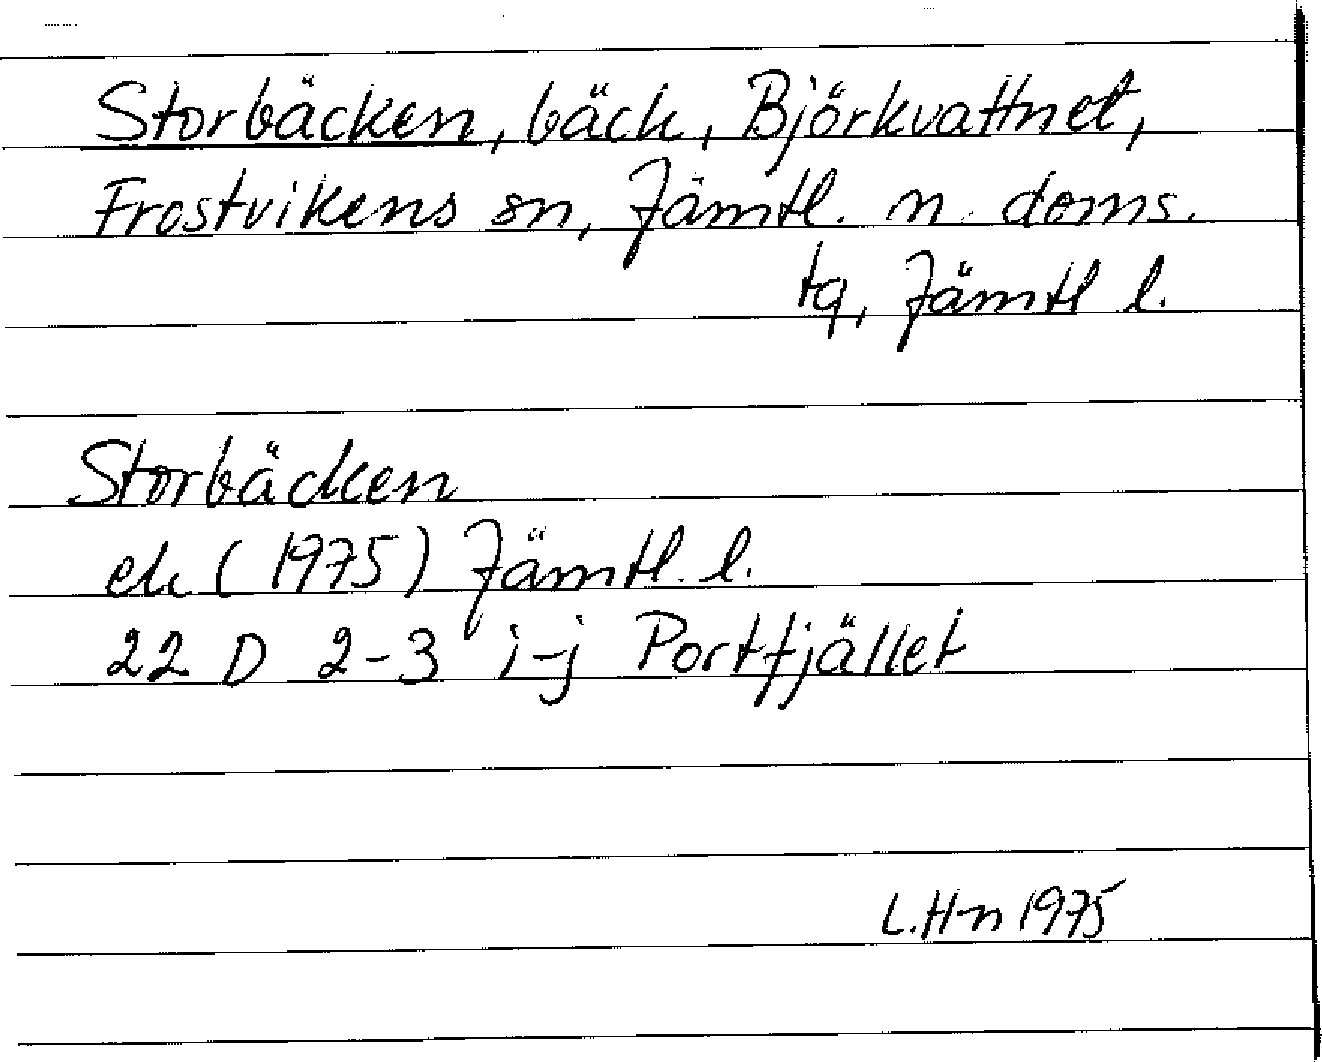 Storbäcken, bäck, Björkvattnet,
Frostvikens sn, Jämtl. n. doms.
tg, Jämtl l.
Storbäcken
ek (1975) Jämtl. l.
22 D 2-3 i-j Portfjället
L.H-n 1975